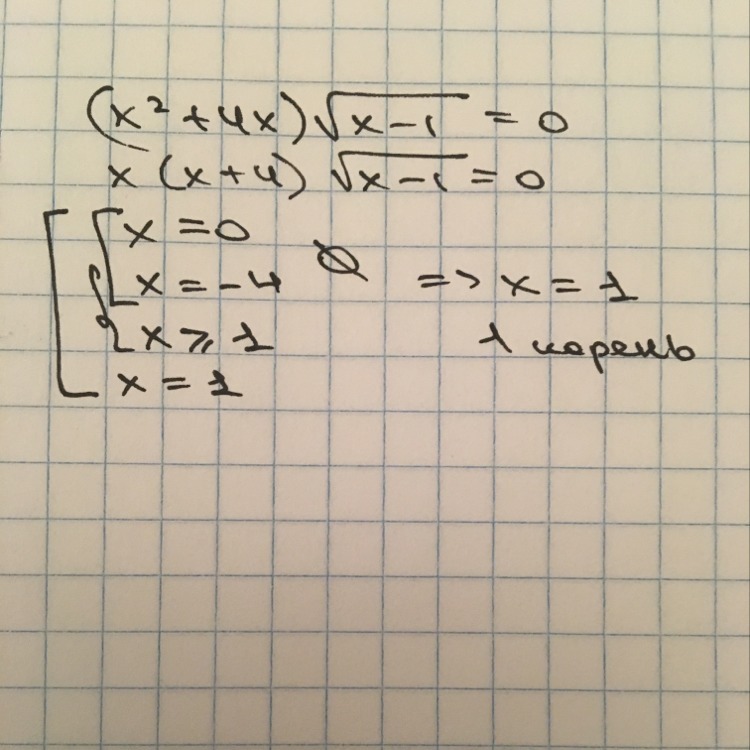 (x² + 4x)√(x-1) = 0
x (x+4) √(x-1) = 0
x = 0
x = -4 ∅ => x = 1
x ⩾ 1 1 корень
x = 1